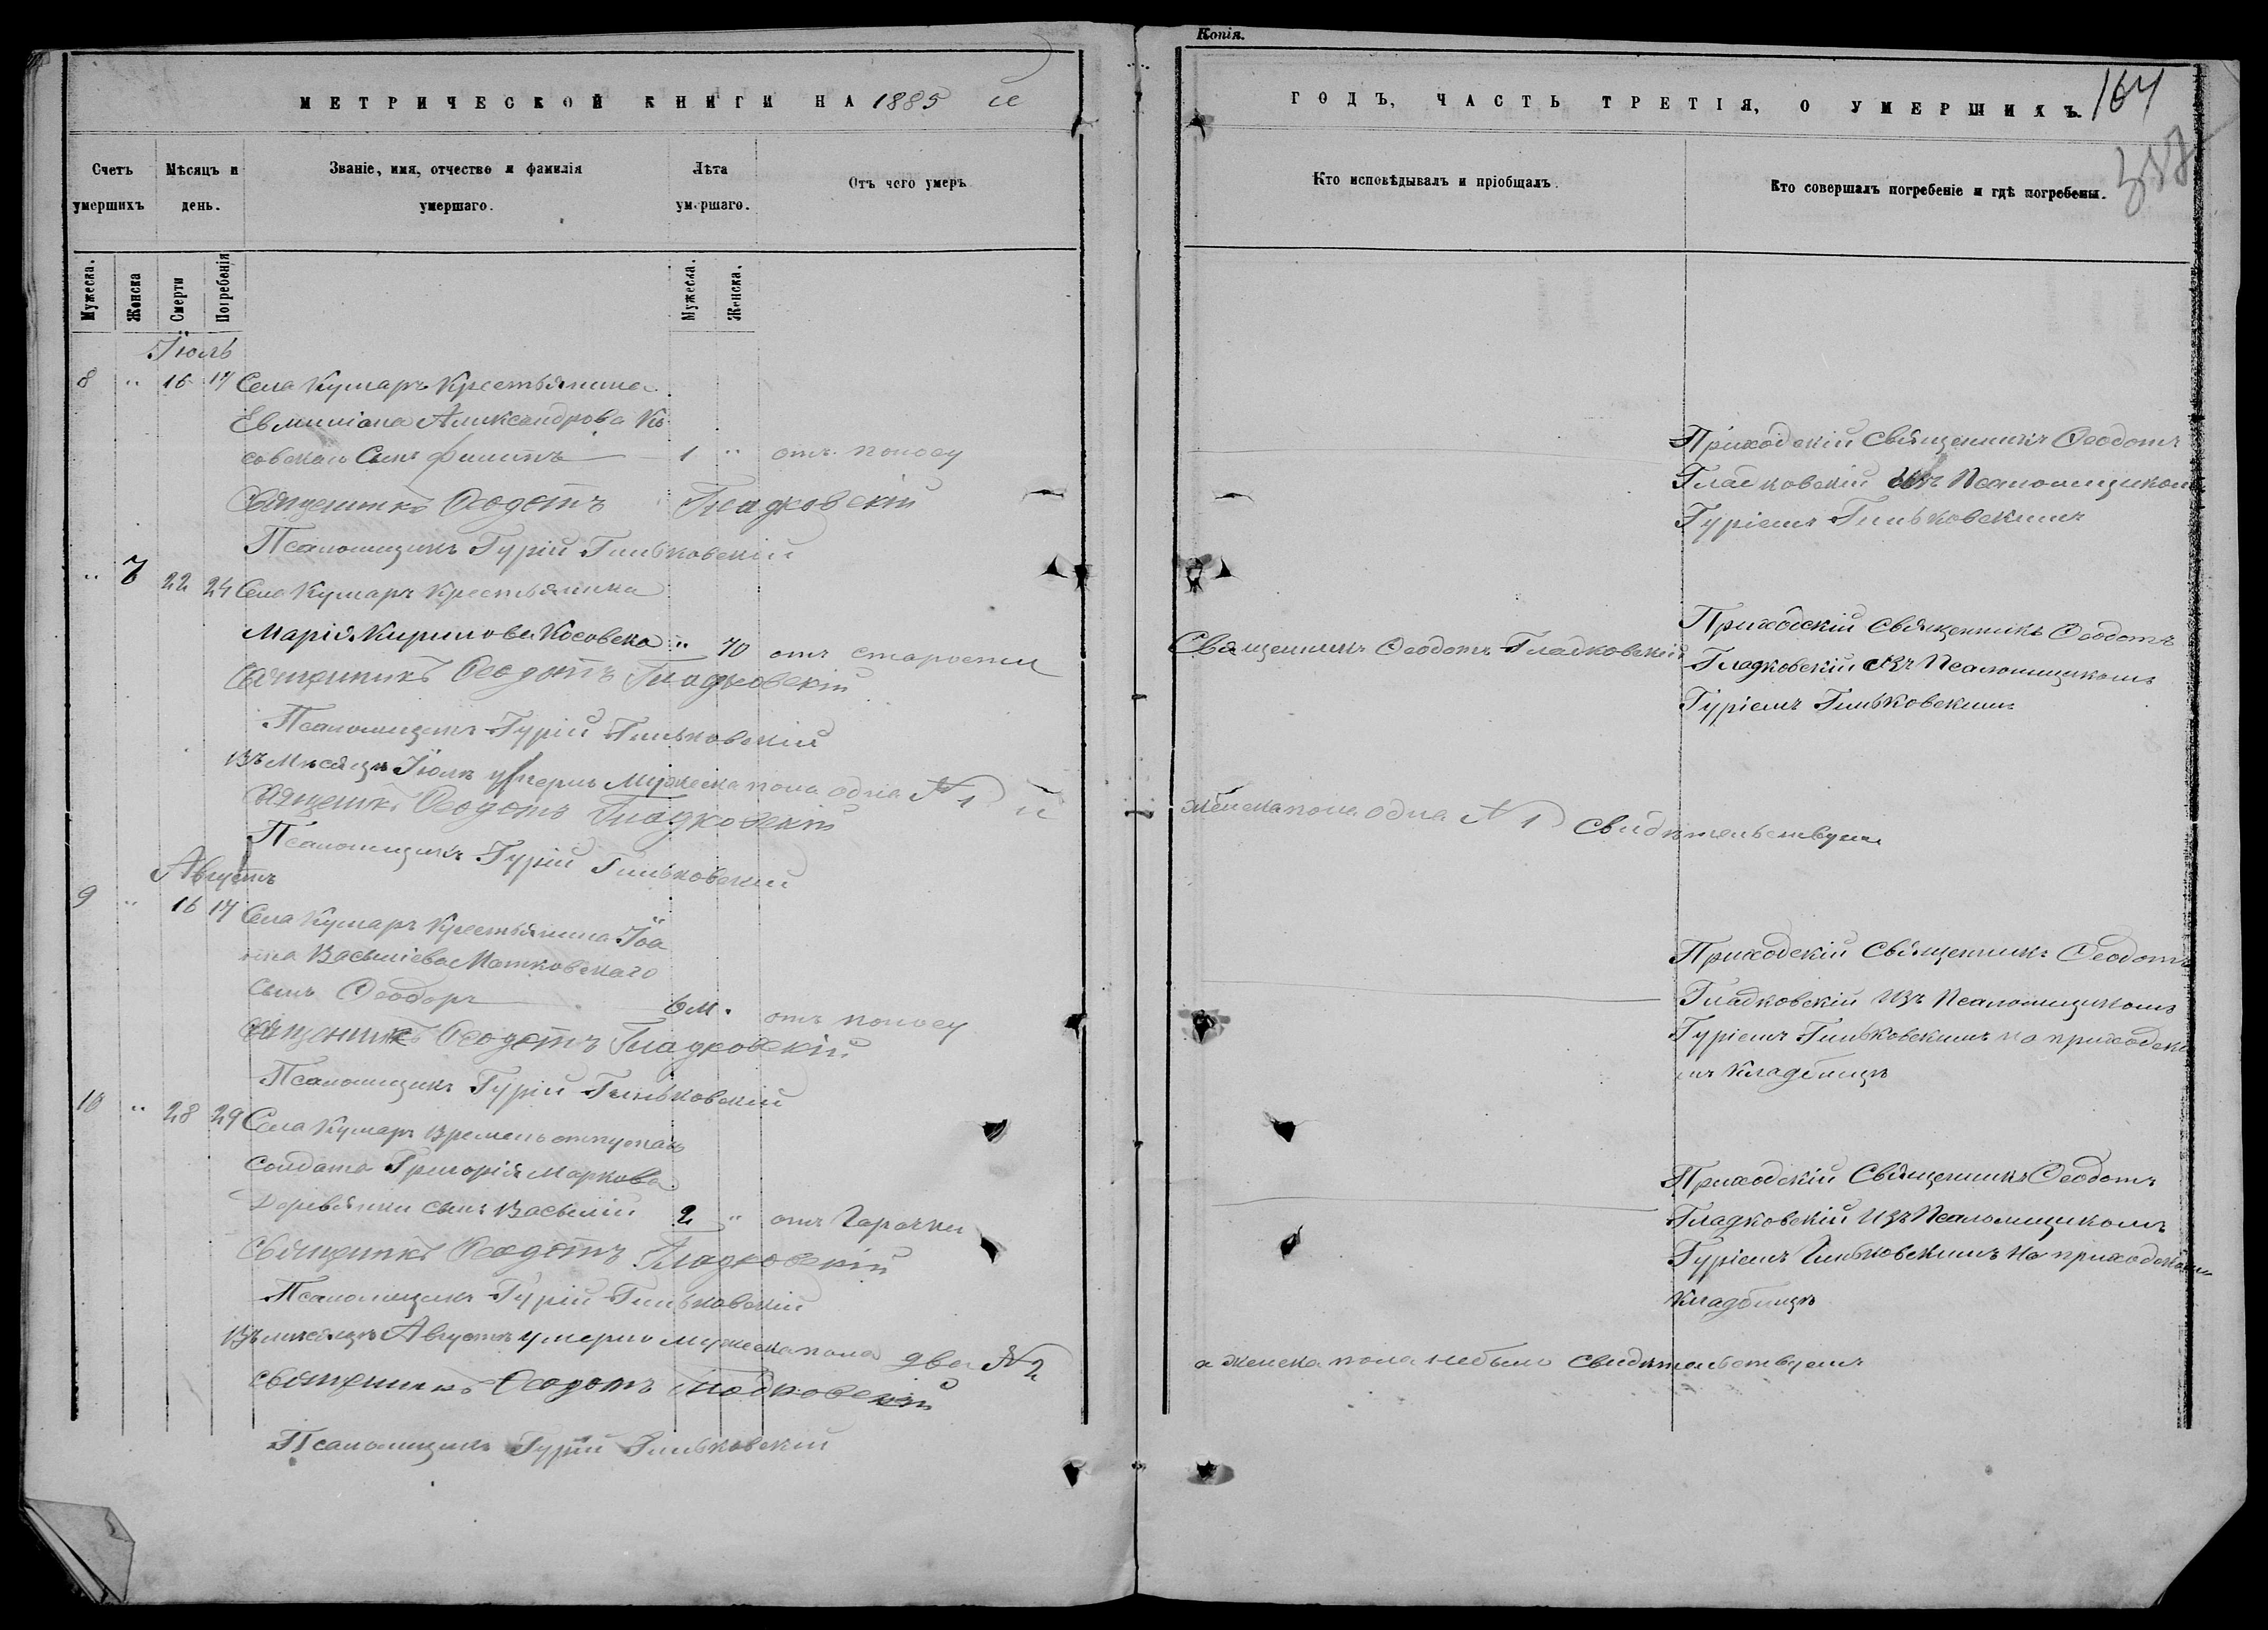 Копія.
МЕТРИЧЕСКОЙ КНИГИ НА 1885 й
ГОДЪ, ЧАСТЬ ТРЕТІЯ, О УМЕРШИХЪ.
164
Счетъ умершихъ
Мѣсяцъ и день.
Званіе, имя, отчество и фамилія умершаго.
Лѣта умершаго.
Отъ чего умеръ
Кто исповѣдывалъ и пріобщалъ.
Кто совершалъ погребеніе и гдѣ погребены.
Мужеска.
Женска
Смерти
Погребенія
Мужеска.
Женска.
Іюль
8 " 16 17 Села Кумаръ Крестьянина
Александрова Ко
совскаго Сынъ Филипъ 1 " отъ поносу
Священникъ Ѳеодотъ Гладковскій
Псаломщикъ Гурій Гиньковскій
Приходскій Священникъ Ѳеодотъ
Гладковскій изъ Псаломщикомъ
Гуріемъ Гиньковскимъ
" 7 22 24 Села Кумаръ Крестьянка
Марія Кирилова Косовска " 70 отъ старости
Священникъ Ѳеодотъ Гладковскій
Псаломщикъ Гурій Гиньковскій
Священникъ Ѳеодотъ Гладковскій
Приходскій Священникъ Ѳеодотъ
Гладковскій изъ Псаломщикомъ
Гуріемъ Гиньковскимъ
Въ Мѣсяцѣ Іюлѣ умерло Мужеска пола одна № 1 й
женска пола одна № 1 свидѣтельствуемъ
Священникъ Ѳеодотъ Гладковскій
Псаломщикъ Гурій Гиньковскій
Августъ
9 " 16 17 Села Кумаръ Крестьянина Іоа
нна Васьиліева Матковскаго
сынъ Ѳеодоръ 6 м. отъ поносу
Священникъ Ѳеодотъ Гладковскій
Псаломщикъ Гурій Гиньковскій
Приходскій Священникъ Ѳеодотъ
Гладковскій изъ Псаломщикомъ
Гуріемъ Гиньковскимъ на приходскі
мъ кладбищѣ
10 " 28 29 Села Кумаръ времено отпускнаго
солдата Григорія Маркова
Деревянки сынъ Васьилій 2 " отъ Гарачки
Священникъ Ѳеодотъ Гладковскій
Псаломщикъ Гурій Гиньковскій
Приходскій Священникъ Ѳеодотъ
Гладковскій изъ Псаломщикомъ
Гуріемъ Гиньковскимъ на приходскомъ
кладбищѣ
Въ мѣсяцѣ Августѣ умерло мужеска пола два № 2
а женска пола небыло свидѣтельствуемъ
Священникъ Ѳеодотъ Гладковскій
Псаломщикъ Гурій Гиньковскій